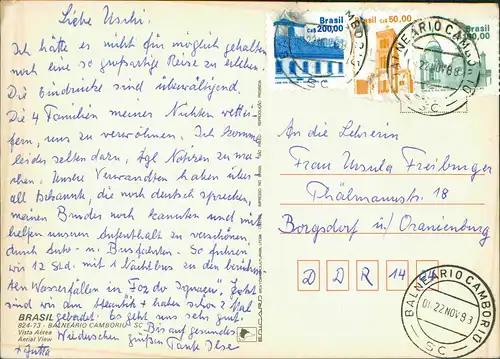 Liebe Uschi!
Ich hätte es nicht für möglich gehalten
noch eine so großartige Reise zu erleben.
Die Eindrücke sind überwältigend.
Die 4 Familien meines Nichten wettei-
fern, uns zu verwöhnen. Ich komme
leider selten dazu, tgl Notizen zu ma-
chen. Unsre Verwandten haben über-
all Bekannte, die noch deutsch sprechen,
meinen Bruder noch kannten und mit
helfen unseren Aufenthalt zu verschönen,
durch Auto- u. Busfahrten. So fuhren
wir 12 Std. mit Nachtbus zu den berühm-
ten Wasserfällen in Foz do Iguaçu. Jetzt
sind wir am Atlantik + haben schon 2 Mal
gebadet. Es geht uns sehr gut.
BRASIL
824-73 - BALNEÁRIO CAMBORIÚ - SC
Vista Aérea
Aerial View
Bis auf gesundes
Wiedersehen grüßen Tante Ilse
+ Jutta
Brasil
Cz$ 200,00
Brasil
Cz$ 50,00
Brasil
BALNEÁRIO CAMBORIÚ
22 NOV 89
SC
An die Lehrerin
Frau Ursula Freiburger
Thälmannstr. 18
Borgsdorf ü/ Oranienburg
D D R 14
BALNEÁRIO CAMBORIÚ
22 NOV 89
SC